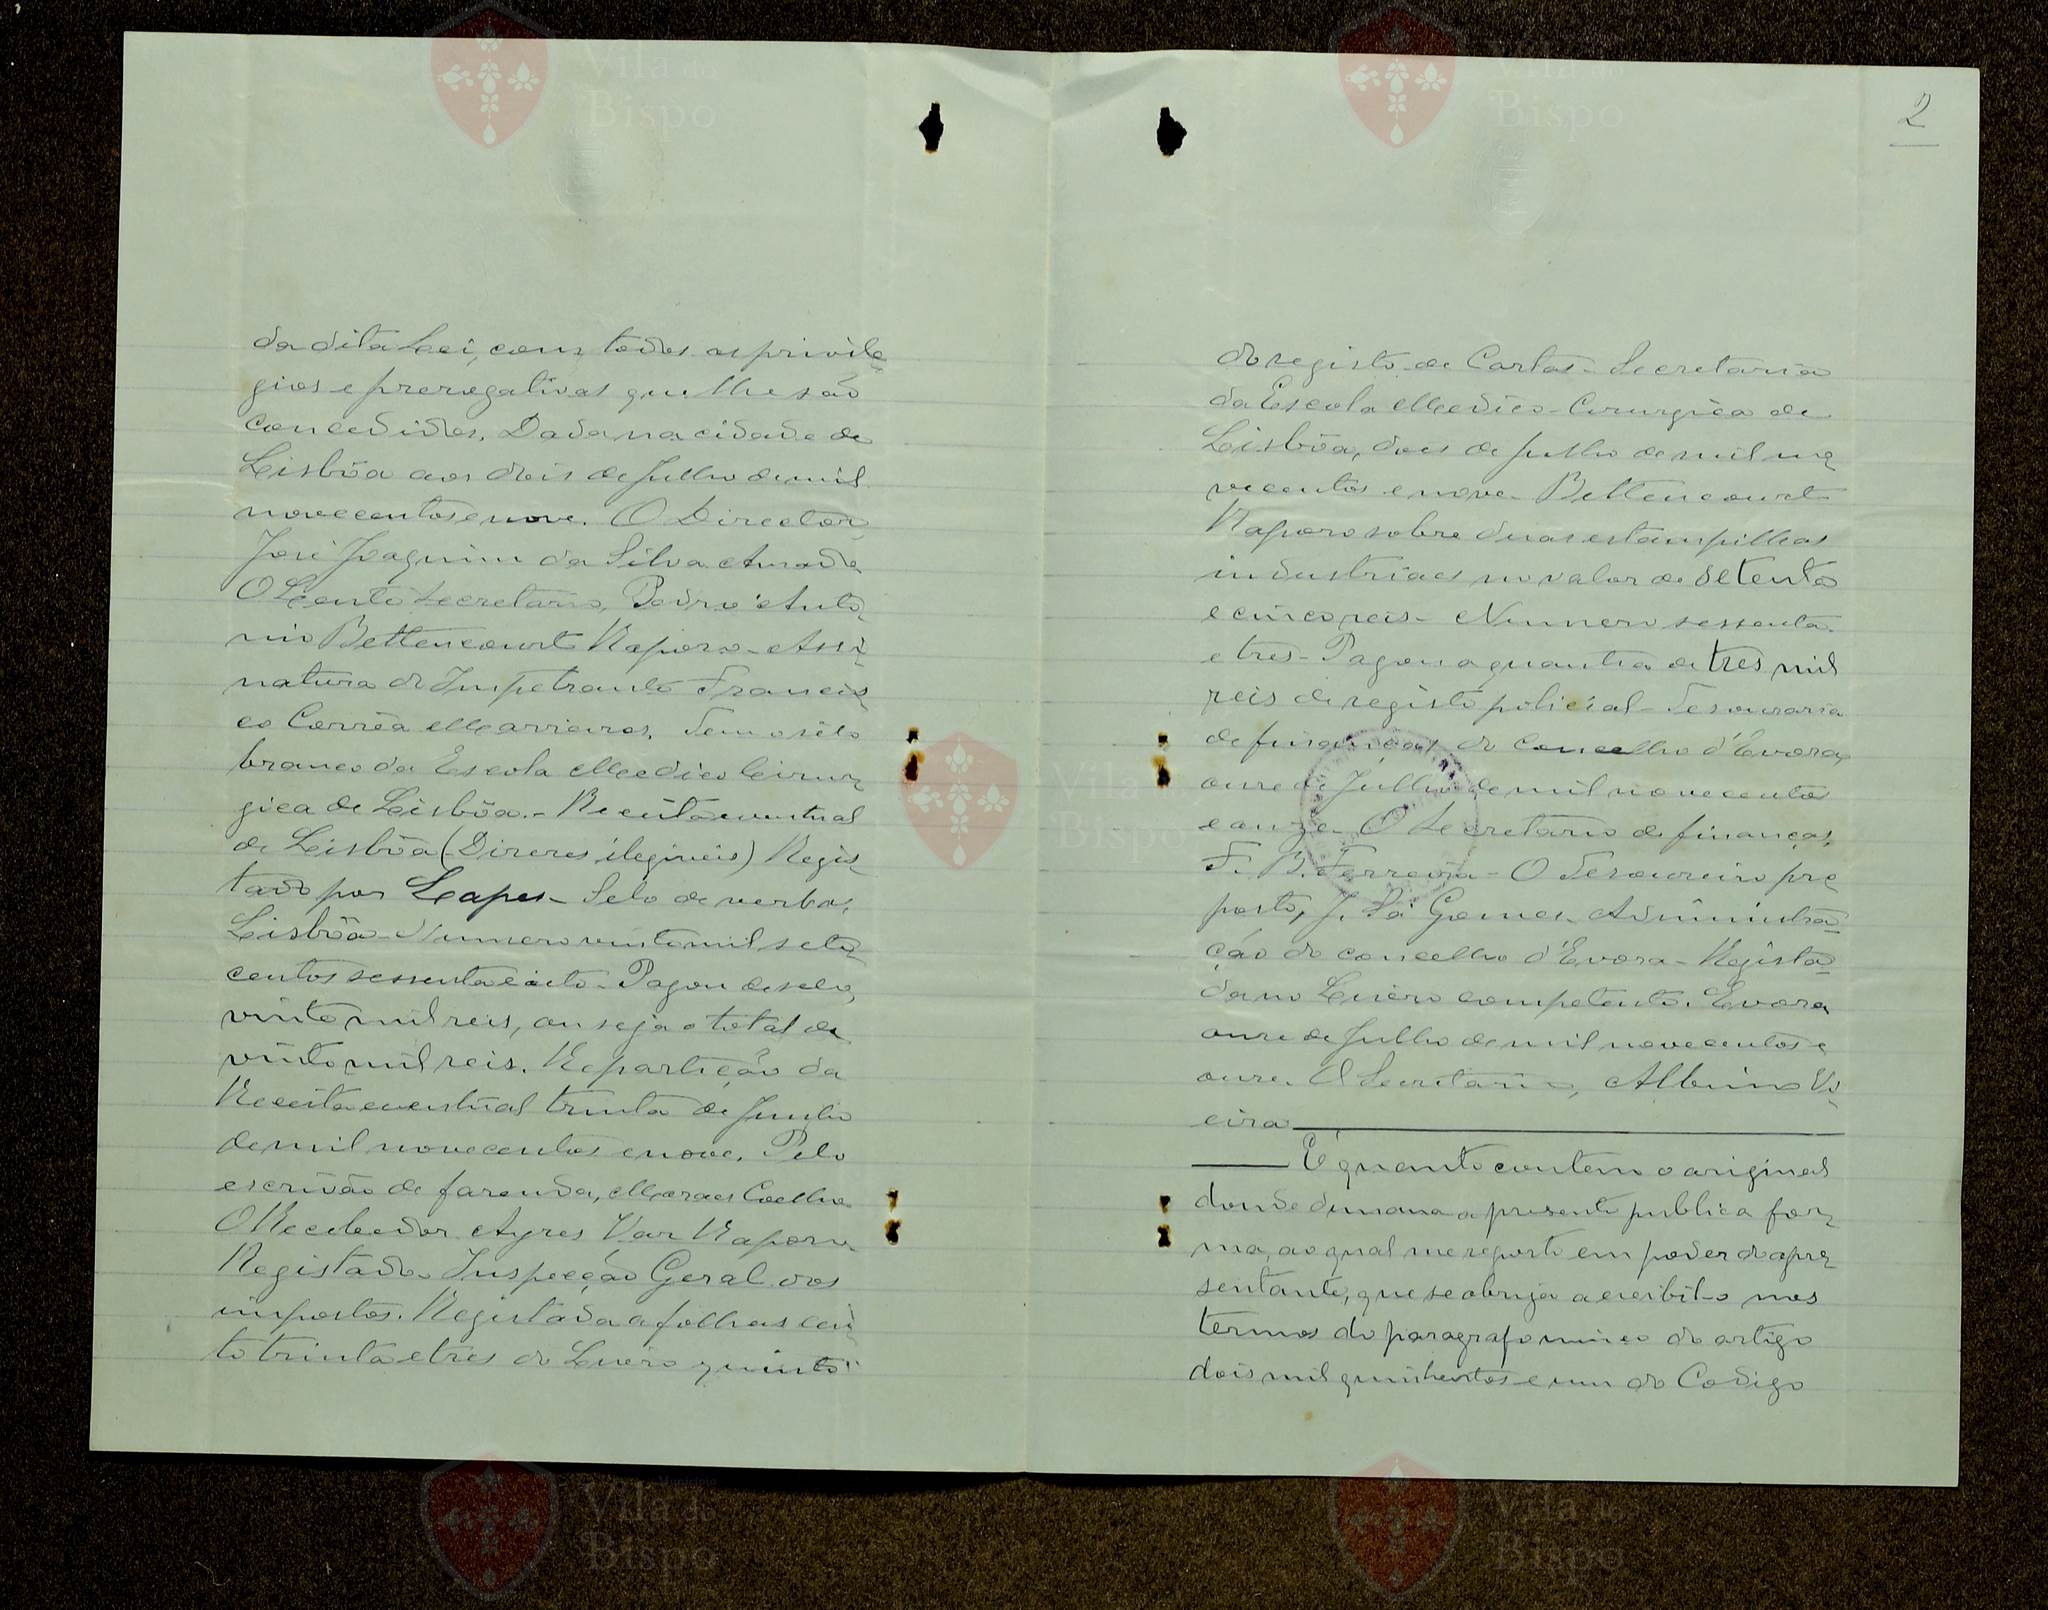 da dita Lei, com todos as privile-
gios e prerogativas que lhe são
concedidos. Dada na cidade de
Lisbôa aos dois de Julho de mil
novecentos e nove. O Director,
José Joaquim da Silva Amado
O Lente Secretario, Pedro Anto-
nio Bettencourt Raposo - Assi-
natura do Impetrante Francis-
co Corrêa Marreiros. Tem o sêlo
branco da Escola Medico Cirur-
gica de Lisbôa. - Receita eventual
de Lisbôa (Dizeres ilegiveis) Regis-
tado por Lapes - Selo de verba,
Lisbôa - Numero vinte mil sete-
centos sessenta e oito - Pagou de selo,
vinte mil reis, ou seja o total de
vinte mil reis. Repartição da
Receita eventual trinta de Junho
de mil novecentos e nove. Pelo
escrivão de fazenda, Moraes Coelho
O Recebedor Ayres Vaz Raposo -
Registado - Inspecção Geral dos
impostos. Registada a folhas cen-
to trinta e tres do Livro quinto
2
do registo de Cartas - Secretaria
da Escola Medico-Cirurgica de
Lisbôa, dois de Julho de mil no-
vecentos e nove - Bettencourt
Raposo sobre duas estampilhas
industriaes no valor de setenta
e cinco reis - Numero sessenta
e tres - Pagou a quantia de tres mil
reis de registo policial - Tesouraria
de finanças do concelho d'Evora,
onze de Julho de mil novecentos
e onze - O Secretario de finanças,
F. B. Ferreira - O Tesoureiro pro-
posto, J. Sá Gomes - Administra-
ção do concelho d'Evora - Regista-
da no Livro competente. Evora
onze de Julho de mil novecentos e
onze. O Secretario, Albino Vi-
eira
É quanto contem o original
donde dimana a presente publica for-
ma, ao qual me reporto em poder do apre-
sentante, que se obriga a exibil-o nos
termos do paragrafo unico do artigo
dois mil quinhentos e um do Codigo
Vila do
Bispo
Vila do
Bispo
Vila do
Bispo
Município
Vila do
Bispo
Vila do
Bispo